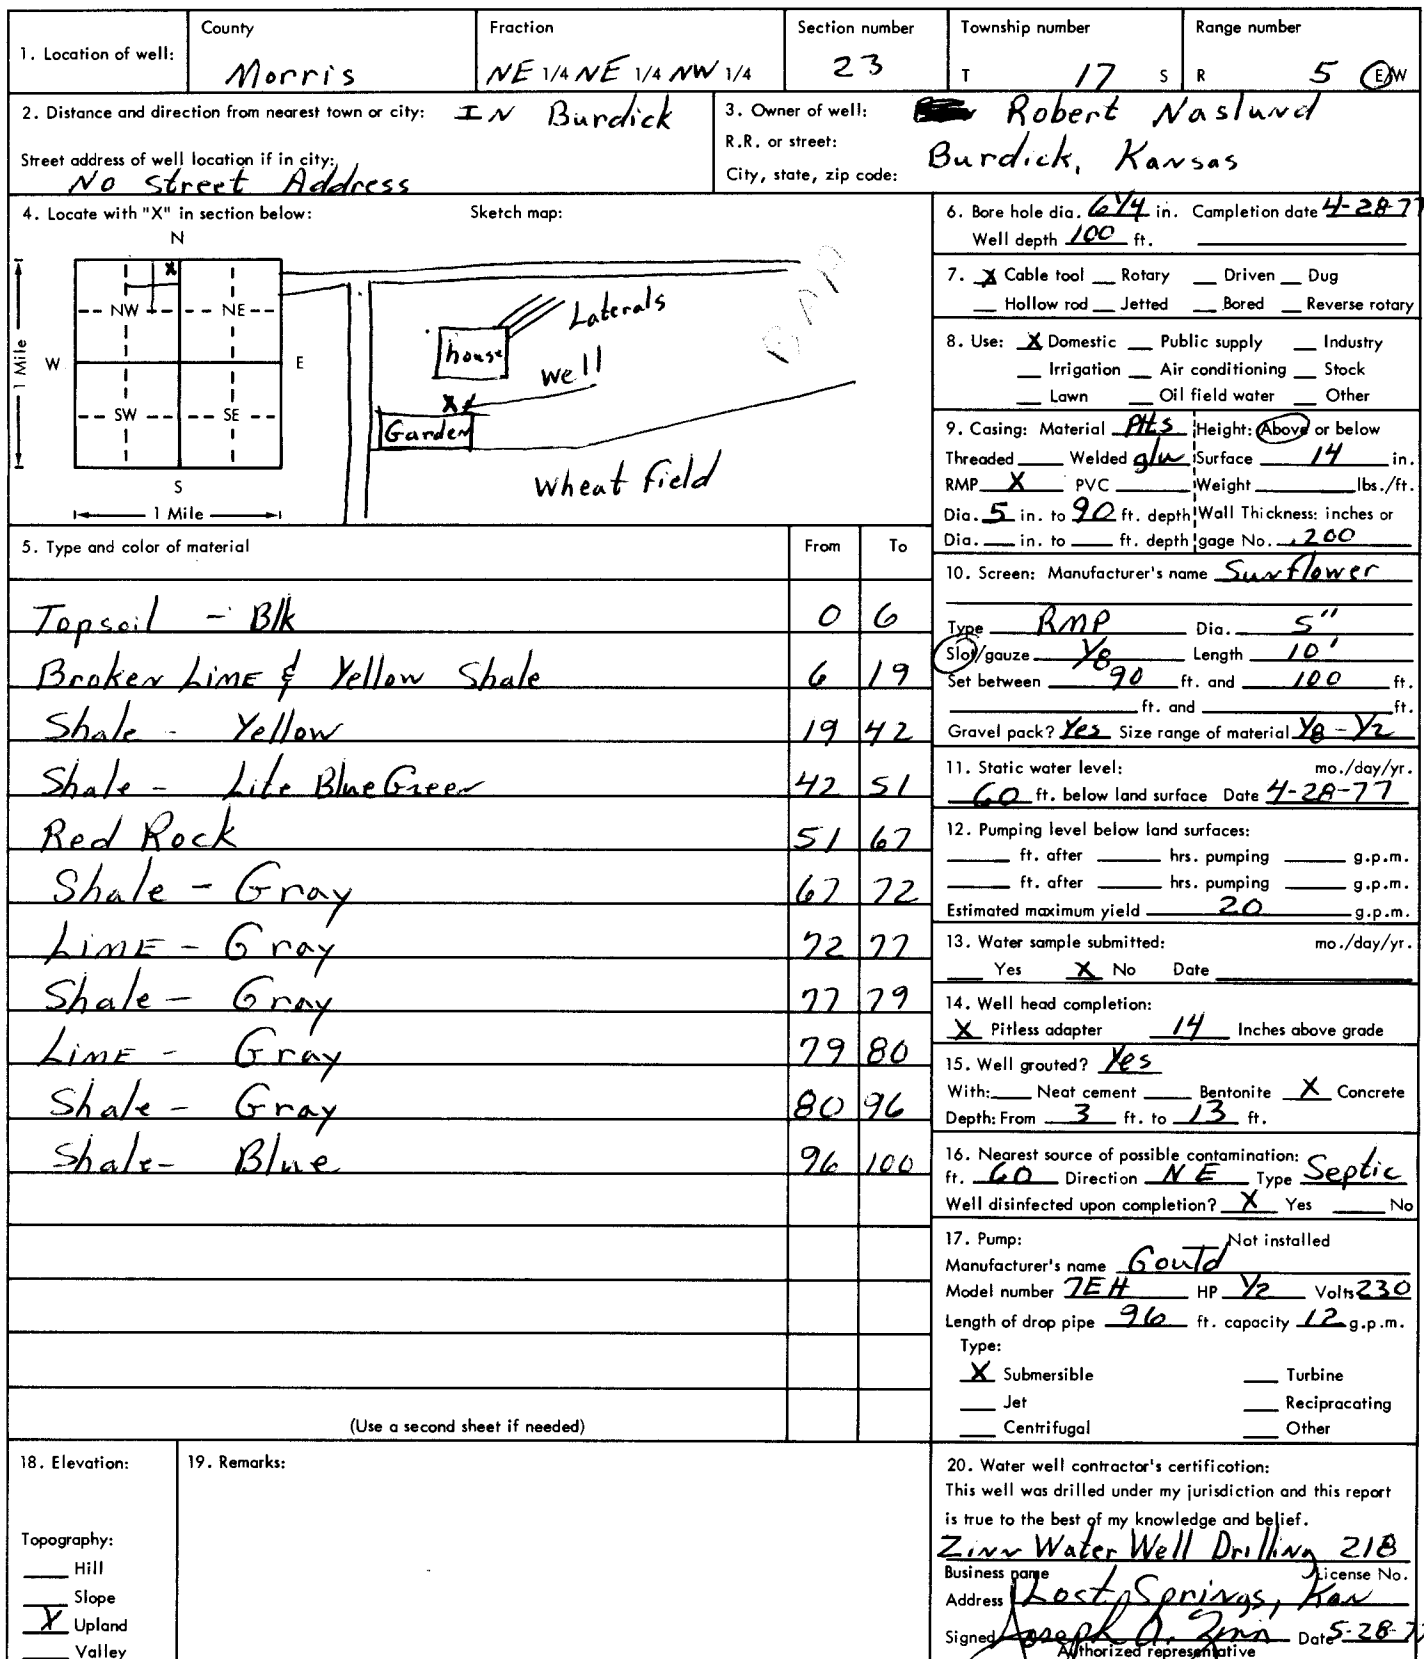 County Fraction Section number Township number Range number
1. Location of well: Morris NE 1/4 NE 1/4 NW 1/4 23 T 17 S R 5 E/W
2. Distance and direction from nearest town or city: IN Burdick
Street address of well location if in city:
No Street Address
3. Owner of well: Robert Naslund
R.R. or street:
City, state, zip code: Burdick, Kansas
4. Locate with "X" in section below: Sketch map:
N
X
NW NE
W E
SW SE
S
1 Mile
1 Mile
Laterals
house
well
X
Garden
Wheat Field
5. Type and color of material From To
Topsoil - Blk 0 6
Broken LIME & Yellow Shale 6 19
Shale - Yellow 19 42
Shale - Lite Blue Green 42 51
Red Rock 51 67
Shale - Gray 67 72
LIME - Gray 72 77
Shale - Gray 77 79
LIME - Gray 79 80
Shale - Gray 80 96
Shale - Blue 96 100
(Use a second sheet if needed)
6. Bore hole dia. 6 1/4 in. Completion date 4-28-77
Well depth 100 ft.
7. X Cable tool Rotary Driven Dug
Hollow rod Jetted Bored Reverse rotary
8. Use: X Domestic Public supply Industry
Irrigation Air conditioning Stock
Lawn Oil field water Other
9. Casing: Material Height: Above or below
Threaded Welded Surface 14 in.
RMP X PVC Weight lbs./ft.
Dia. 5 in. to 90 ft. depth Wall Thickness: inches or
Dia. in. to ft. depth gage No. .200
10. Screen: Manufacturer's name Sunflower
Type RMP Dia. 5"
Slot/gauze 1/8 Length 10'
Set between 90 ft. and 100 ft.
ft. and ft.
Gravel pack? Yes Size range of material 1/8 - 1/2
11. Static water level: mo./day/yr.
60 ft. below land surface Date 4-28-77
12. Pumping level below land surfaces:
ft. after hrs. pumping g.p.m.
ft. after hrs. pumping g.p.m.
Estimated maximum yield 20 g.p.m.
13. Water sample submitted: mo./day/yr.
Yes X No Date
14. Well head completion:
X Pitless adapter 14 Inches above grade
15. Well grouted? Yes
With: Neat cement Bentonite X Concrete
Depth: From 3 ft. to 13 ft.
16. Nearest source of possible contamination:
ft. 60 Direction NE Type Septic
Well disinfected upon completion? X Yes No
17. Pump: Not installed
Manufacturer's name Gould
Model number 7EH HP 1/2 Volts 230
Length of drop pipe 96 ft. capacity 12 g.p.m.
Type:
X Submersible Turbine
Jet Reciprocating
Centrifugal Other
18. Elevation:
Topography:
Hill
Slope
X Upland
Valley
19. Remarks:
20. Water well contractor's certification:
This well was drilled under my jurisdiction and this report
is true to the best of my knowledge and belief.
Zinn Water Well Drilling 218
Business name License No.
Address Lost Springs, Kan
Signed Joseph A. Zinn Date 5-28-77
Authorized representative